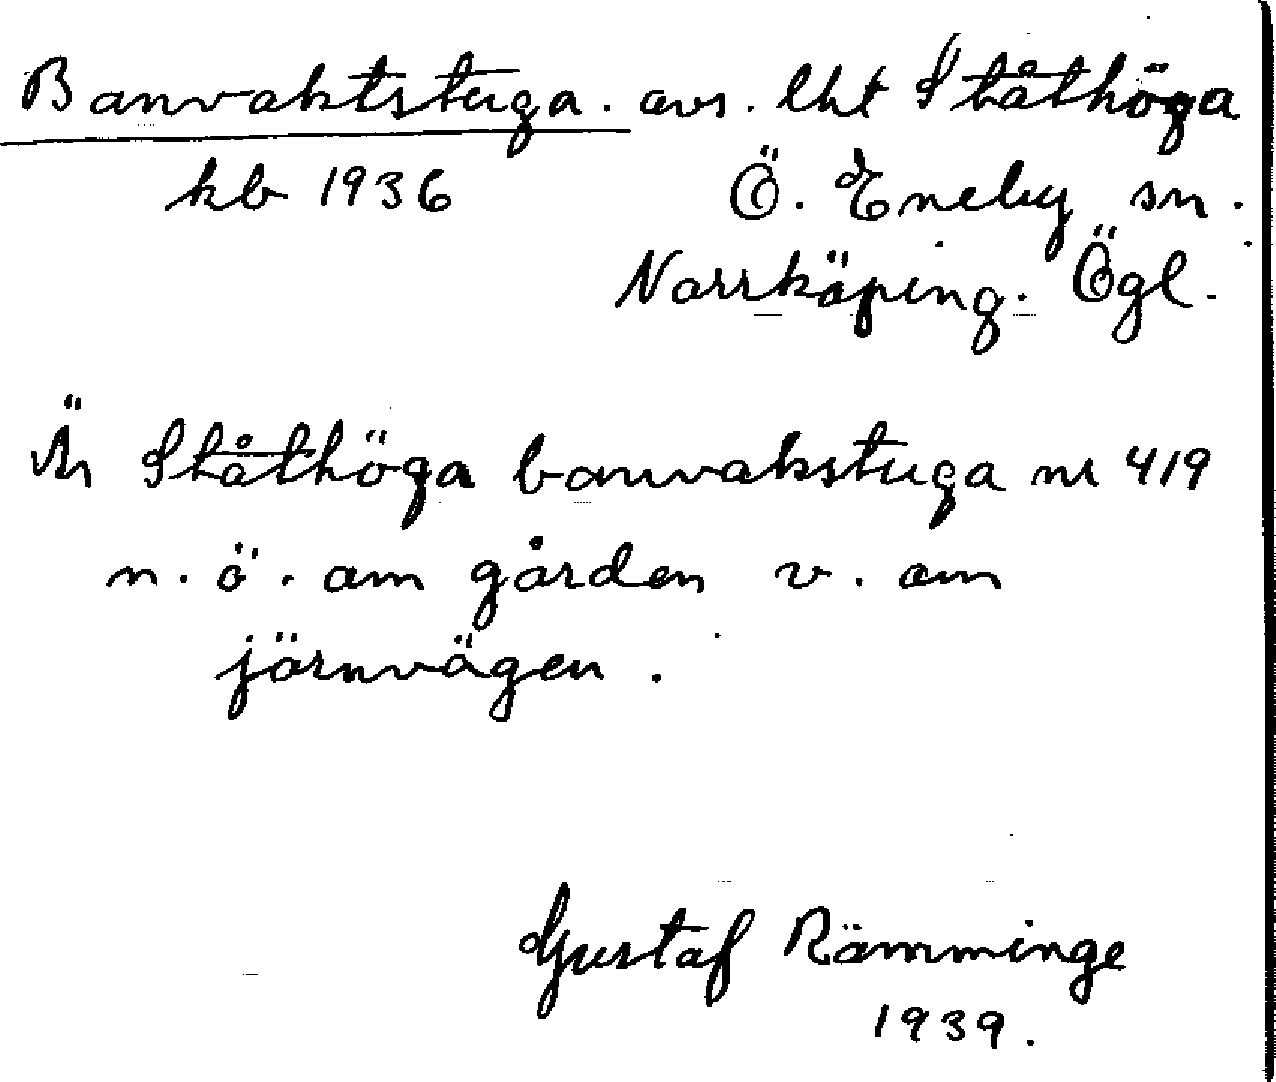 Banvaktstuga. avs. lht Ståthöga
kb 1936 Ö. Eneby sn.
Norrköping. Ögl.
Är Ståthöga banvakstuga nr 419
n. ö. om gården v. om
järnvägen.
Gustaf Rämminge
1939.